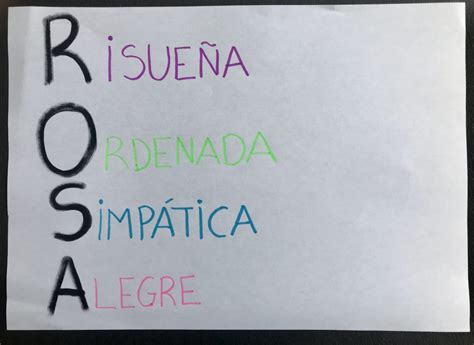 RiSUEÑA
ORDENADA
SiMPÁTiCA
ALEGRE